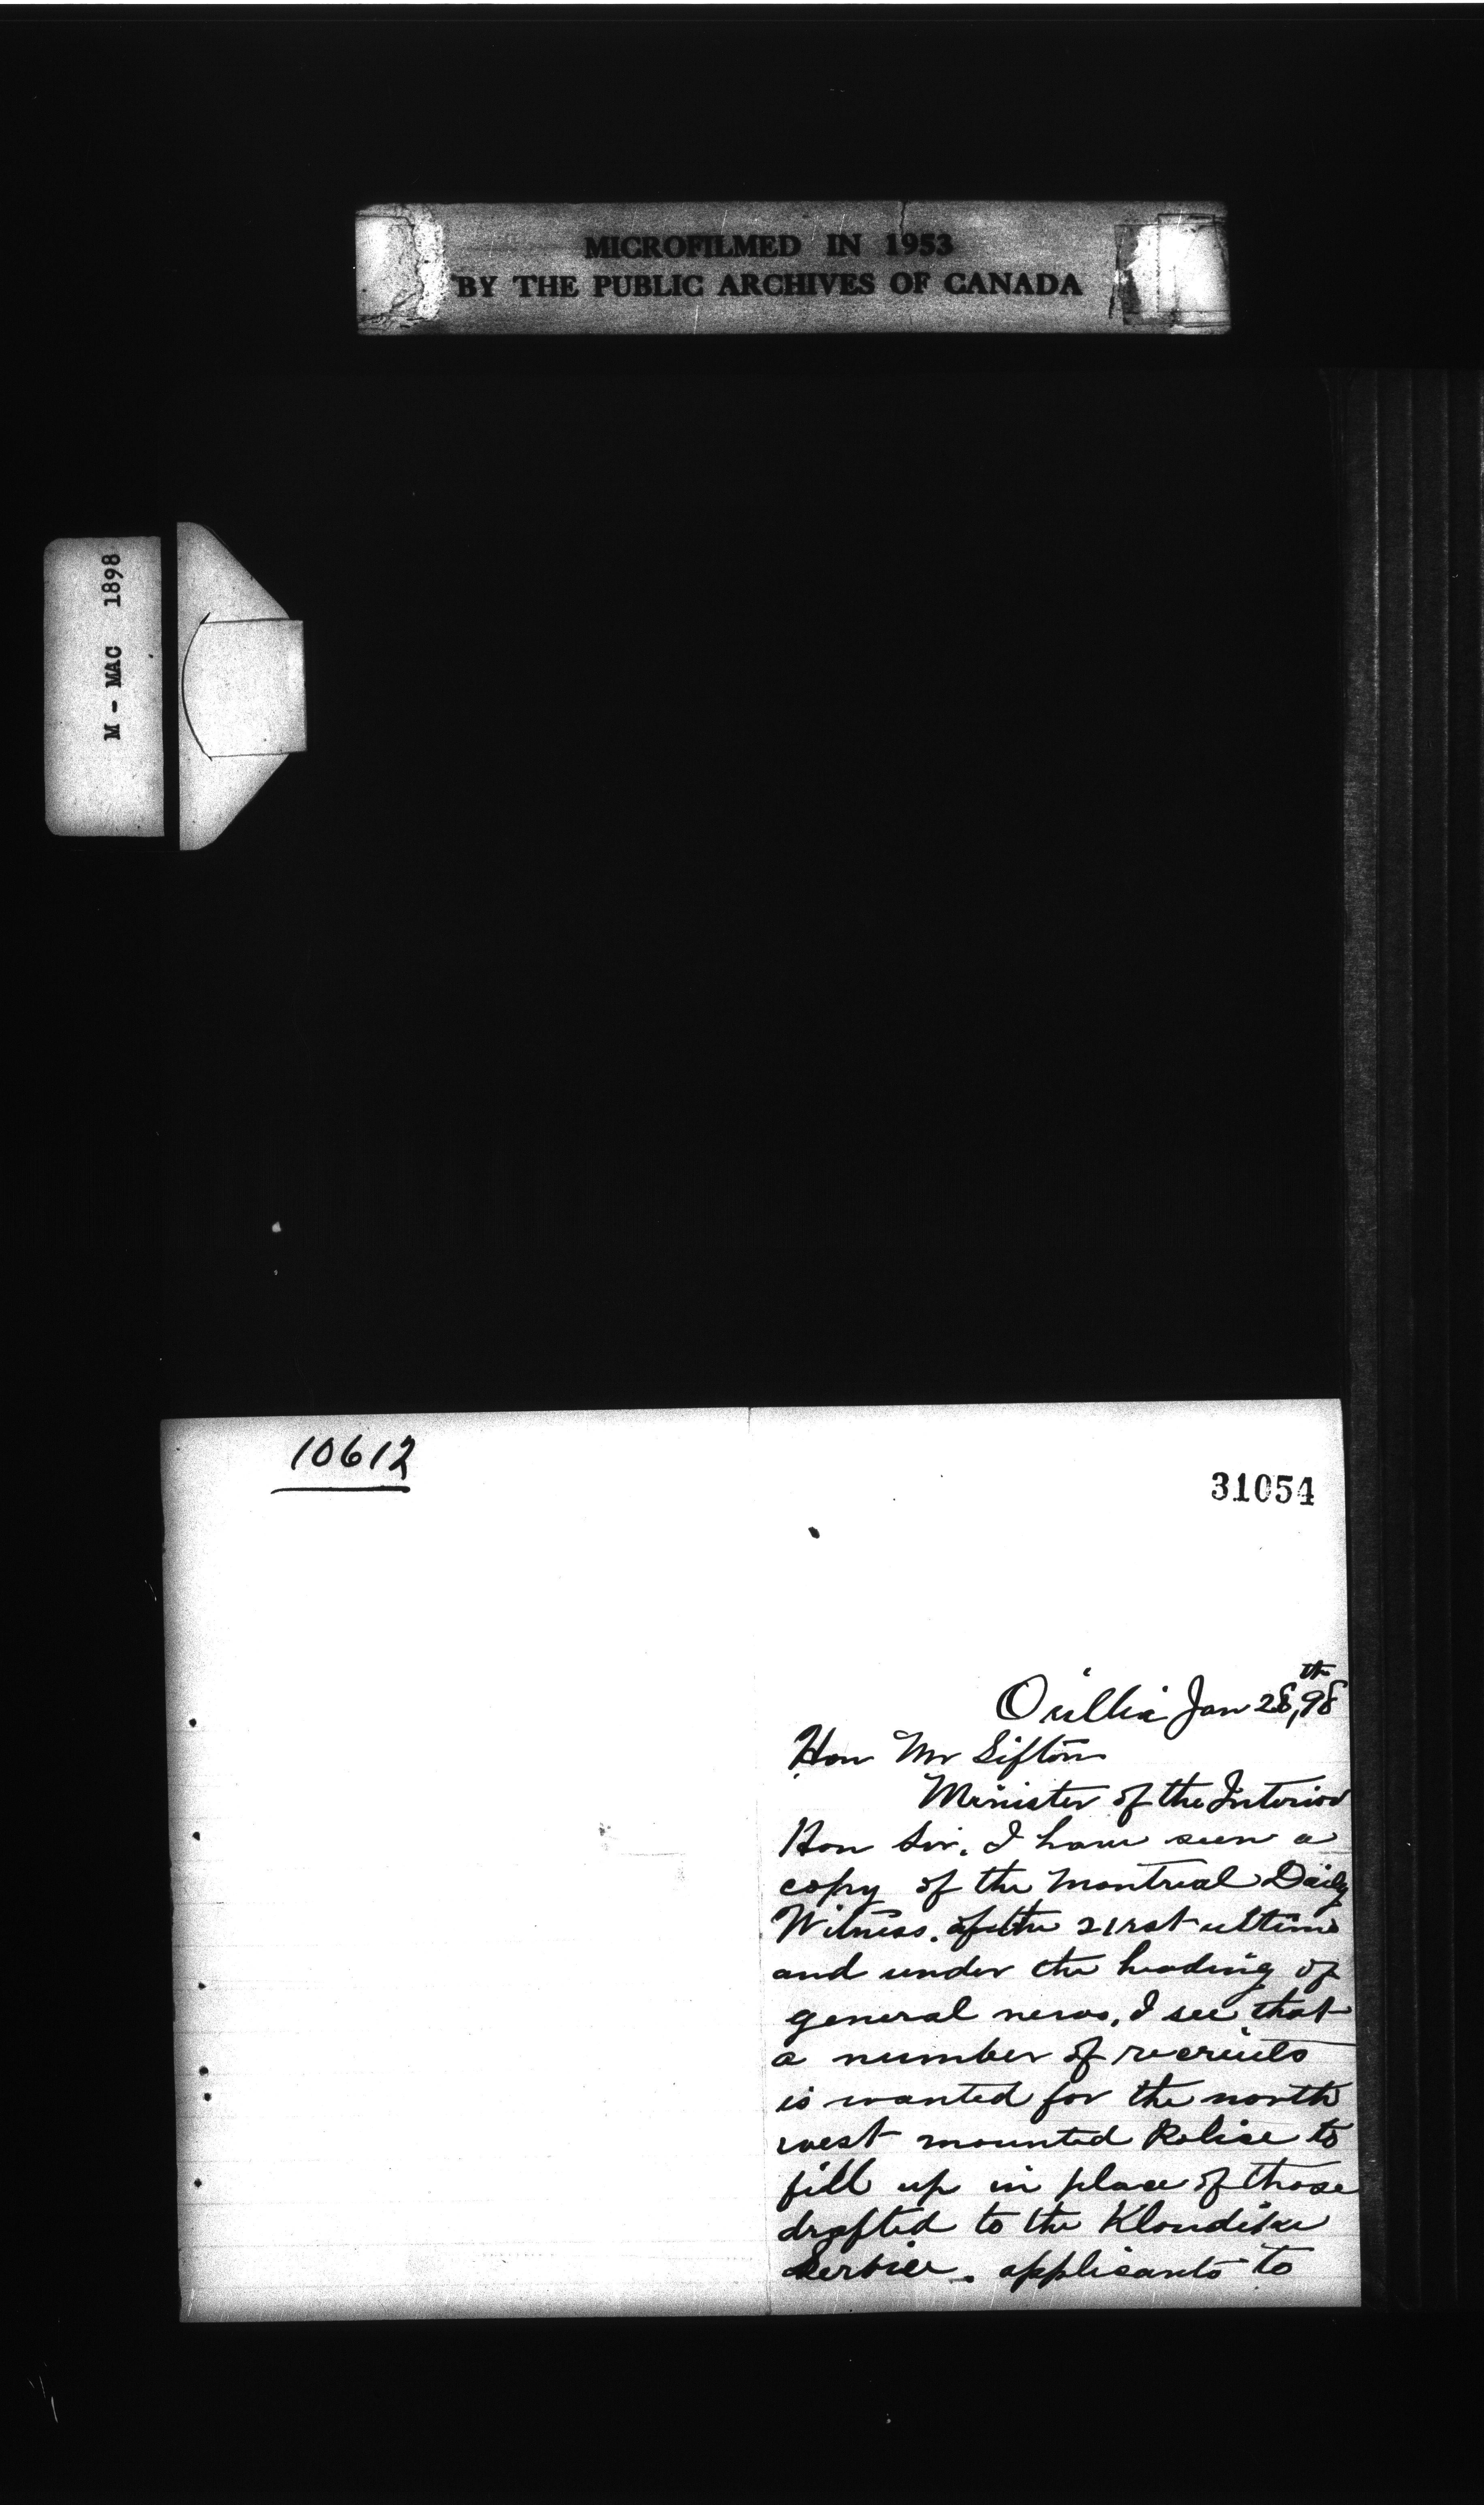 MICROFILMED IN 1953
BY THE PUBLIC ARCHIVES OF CANADA
M - MAC 1898
10612
31054
Orillia Jan 28th, 98
Hon Mr Sifton
Minister of the Interior
Hon Sir. I have seen a
copy of the Montreal Daily
Witness. of the 21rst ultimo
and under the heading of
general news, I see that
a number of recruits
is wanted for the north
west mounted Police to
fill up in place of those
drafted to the Klondike
Service. applicants to